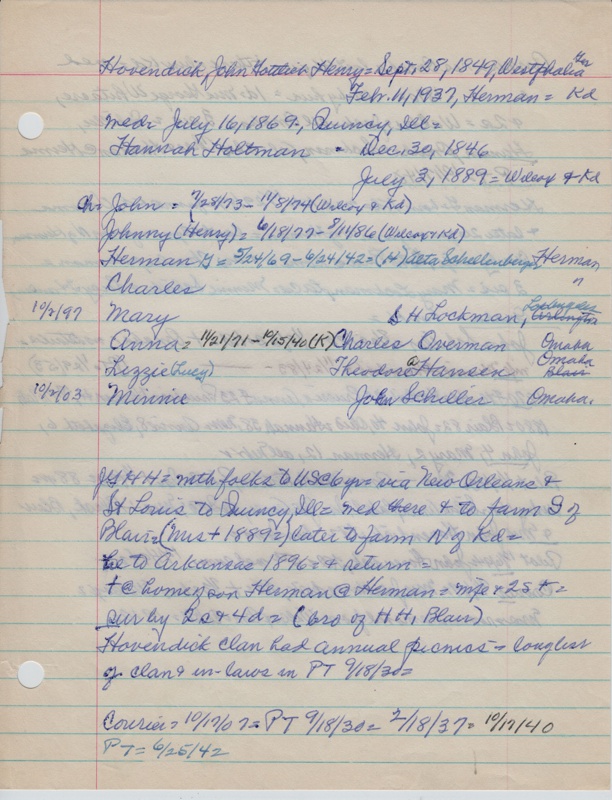 Hovendick, John Gottlieb Henry = Sept. 28, 1849, Westphalia Ger
Feb. 11, 1937, Herman = Kd
med = July 16, 1869, Quincy, Ill =
Hannah Holtman - Dec. 30, 1846
July 3, 1889 = Wilcox & Kd
Ch = John = 7/28/73 - 11/8/74 (Wilcox & Kd)
Johnny (Henry) = 6/18/77 - 8/11/86 (Wilcox & Kd)
Herman G = 5/24/69 - 6/24/42 = (H) Aeta Schellenberg, Herman
Charles "
10/2/97 Mary S H Lockman, Arlington
Anna = 11/21/71 - 10/15/40 (K) Charles Overman Omaha
Lizzie (Lucy) Theodore A Hansen Omaha Blair
10/2/03 Minnie John Schiller Omaha.
JGHH = with folks to US C 6 yr = via New Orleans &
St Louis to Quincy, Ill = med there & to farm S of
Blair = (Mrs + 1889 =) later to farm N of Kd =
he to Arkansas 1896 = & return =
+ @ home son Herman @ Herman = wife & 2S + =
sur by 2s & 4d = (bro of H H, Blair)
Hovendick clan had annual picnics = long list
of clan & in-laws in PT 9/18/30 =
Courier = 10/17/07 = PT 9/18/30 = 2/18/37 = 10/17/40
PT = 6/25/42